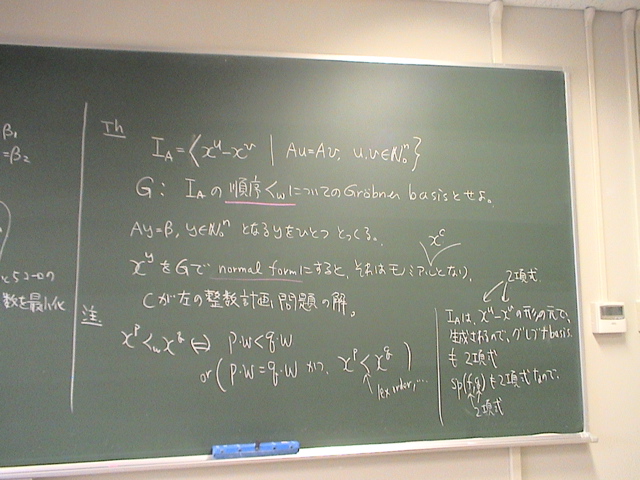 β₁
=β₂
数を最小化
Th
I_A = ⟨ x^u - x^v | Au=Av, u,v∈N₀ⁿ }
G: I_A の順序<_w についての Gröbner basis とせよ。
Ay=β, y∈N₀ⁿ となる y をひとつ とってくる。
x^c
x^y を G で normal form にすると, それはモノミアルとなり,
c が左の整数計画問題の解。
注
x^p <_w x^q ⇔ p·w < q·w
or ( p·w = q·w かつ, x^p < x^q )
lex order, …
2項式
I_A は, x^u - x^v の形の元で,
生成されるので, グレブナ basis
も 2項式
sp(f,g) も 2項式なので,
2項式